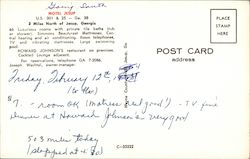 Going South
MOTEL JESUP
U.S. 301 & 25 — Ga. 38
2 Miles North of Jesup, Georgia
65 Luxurious rooms with private tile baths (tub or shower). Simmons Beautyrest Mattresses. Central heating and air conditioning. Room telephones, TV and vibrating mattresses. Large swimming pool.
HOWARD JOHNSON'S restaurant on premises. Cocktail Lounge adjacent.
For reservations, telephone GA 7-2086.
Joseph , owner-manager.
PLACE STAMP HERE
POST CARD
address
Friday February 12th
$7. - room OK (Mattress real good) - TV fine
dinner at Howard Johnson's very good
503 miles today
(stopped at 4:30)
C-22522